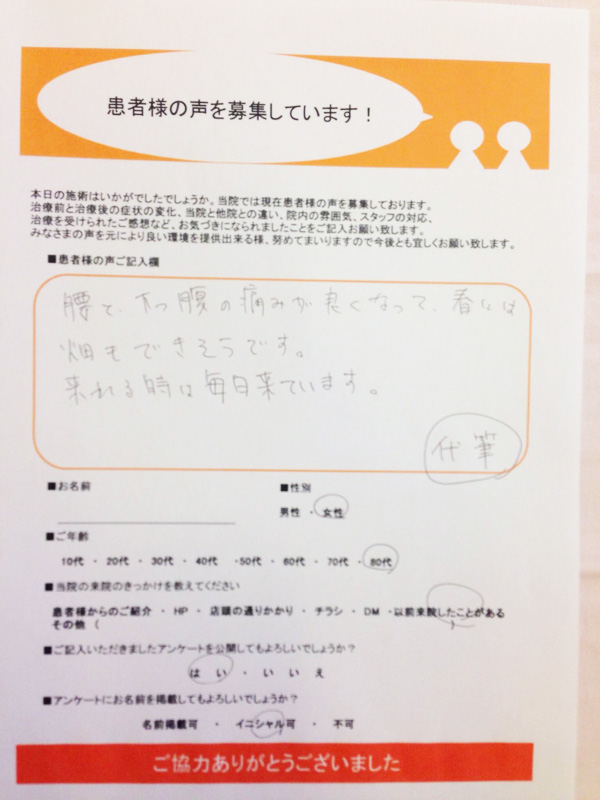 患者様の声を募集しています！
本日の施術はいかがでしたでしょうか。当院では現在患者様の声を募集しております。
治療前と治療後の症状の変化、当院と他院との違い、院内の雰囲気、スタッフの対応、
治療を受けられたご感想など、お気づきになられましたことをご記入お願い致します。
みなさまの声を元により良い環境を提供出来る様、努めてまいりますので今後とも宜しくお願い致します。
■患者様の声ご記入欄
腰と、下っ腹の痛みが良くなって、春には
畑もできそうです。
来れる時は毎日来ています。
代筆
■お名前
■性別
男性 ・ 女性
■ご年齢
10代 ・ 20代 ・ 30代 ・ 40代 ・50代 ・ 60代 ・ 70代 ・ 80代
■当院の来院のきっかけを教えてください
患者様からのご紹介 ・ HP ・ 店頭の通りかかり ・ チラシ ・ DM ・以前来院したことがある
その他 （ ）
■ご記入いただきましたアンケートを公開してもよろしいでしょうか？
は い ・ い い え
■アンケートにお名前を掲載してもよろしいでしょうか？
名前掲載可 ・ イニシャル可 ・ 不可
ご協力ありがとうございました